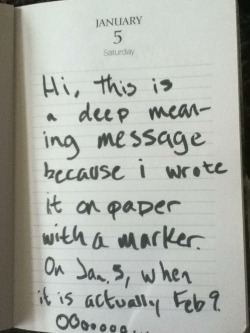 JANUARY
5
Saturday
Hi, this is
a deep mean-
ing message
because i wrote
it on paper
with a marker.
On Jan. 5, when
it is actually Feb 9.
OOoooooo...